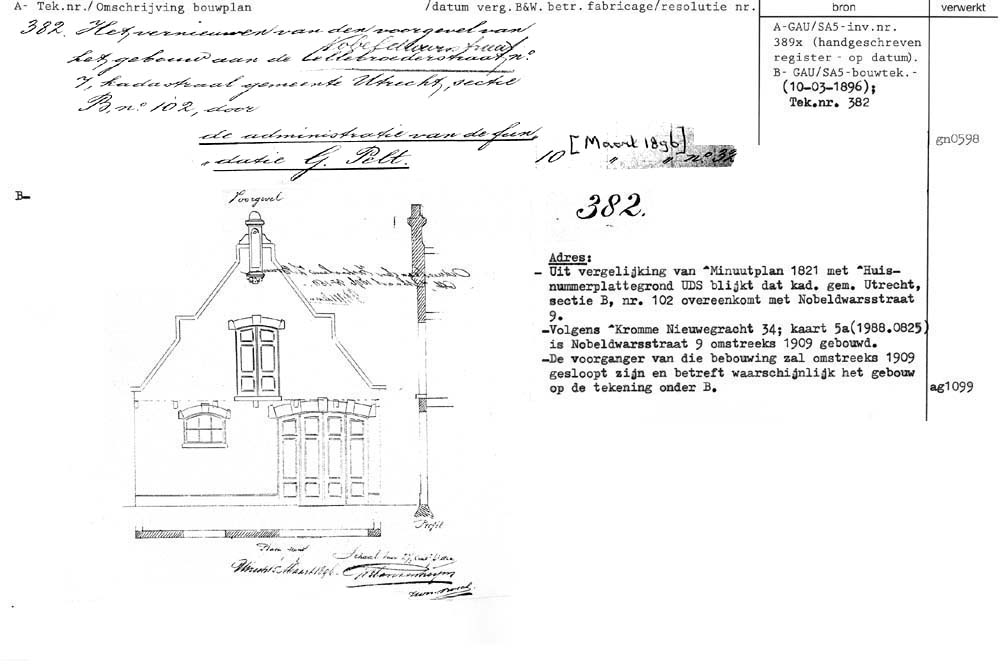 A- Tek.nr./Omschrijving bouwplan /datum verg.B&W.betr.fabricage/resolutie nr. bron verwerkt
382. Het vernieuwen van den voorgevel van
Nobeldwarsstraat
het gebouw aan de Cellebroederstraat, nº
7, kadastraal gemeente Utrecht, sectie
B, nº 102, door
de administratie van de fun-
"datie G. Pelt.
10 [Maart 1896] " " nº 32
A-GAU/SA5-inv.nr.
389x (handgeschreven
register - op datum).
B- GAU/SA5-bouwtek.-
(10-03-1896);
Tek.nr. 382
gn0598
B-
Voorgevel
382.
Adres:
- Uit vergelijking van ^Minuutplan 1821 met ^Huis-
nummerplattegrond UDS blijkt dat kad. gem. Utrecht,
sectie B, nr. 102 overeenkomt met Nobeldwarsstraat
9.
-Volgens ^Kromme Nieuwegracht 34; kaart 5a(1988.0825)
is Nobeldwarsstraat 9 omstreeks 1909 gebouwd.
-De voorganger van die bebouwing zal omstreeks 1909
gesloopt zijn en betreft waarschijnlijk het gebouw
op de tekening onder B.
ag1099
Profil
Schaal
Utrecht Maart 1896.